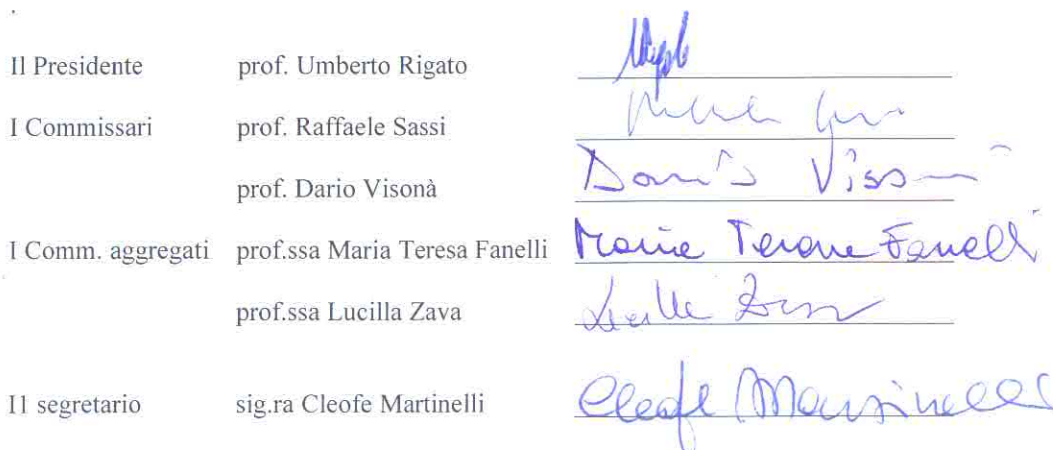 Il Presidente prof. Umberto Rigato
I Commissari prof. Raffaele Sassi
prof. Dario Visonà Dario
I Comm. aggregati prof.ssa Maria Teresa Fanelli Maria Teresa Fanelli
prof.ssa Lucilla Zava Lucilla Zava
Il segretario sig.ra Cleofe Martinelli Cleofe Martinelli